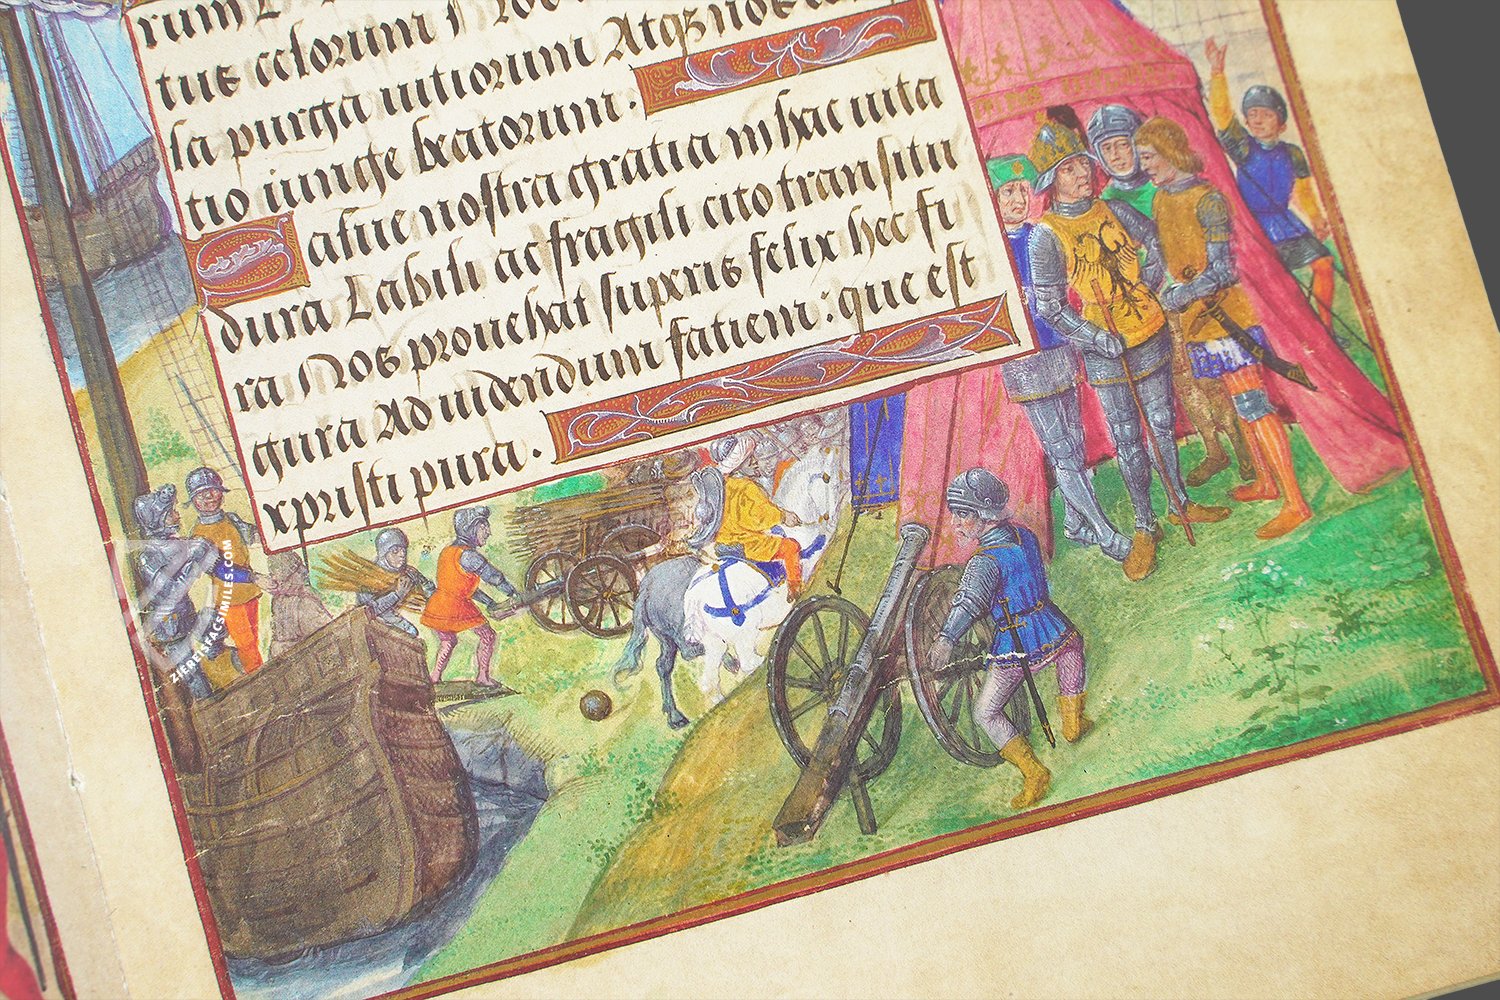 tus celorum
la purga uitiorum Atq nos
tio iunge beatorum.
Salue nostra gratia in hac uita
dura Labili ac fragili cito transitu
ra Nos prouehat superis felix hec fi
gura Ad uidendum fatiem: que est
xpristi pura.
ZIEREISFACSIMILES.COM